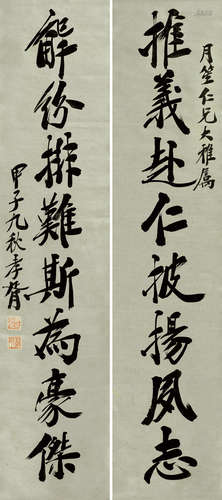 月笙仁兄大雅属
推義赴仁被揚夙志
解紛排難斯為豪傑
甲子九秋孝胥